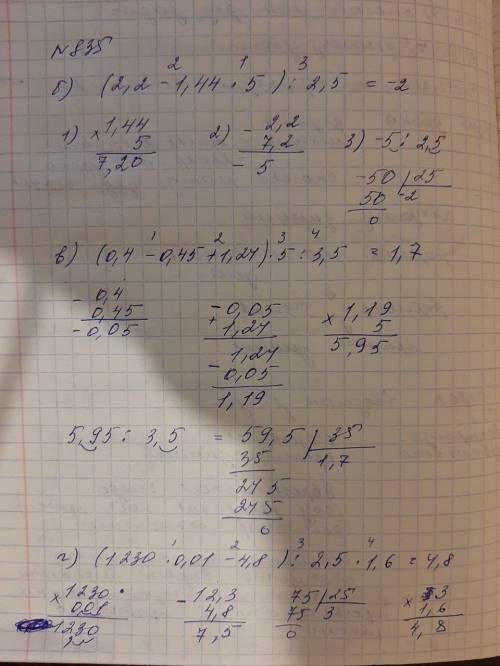 №835
2 1 3
б) (2,2 - 1,44 · 5) : 2,5 = -2
1) × 1,44
5
7,20
2) - 2,2
7,2
- 5
3) -5 : 2,5
-50 | 25
50 -2
0
1 2 3 4
в) (0,4 - 0,45 + 1,24) · 5 : 3,5 = 1,7
- 0,4
0,45
- 0,05
- 0,05
+ 1,24
1,24
- 0,05
1,19
× 1,19
5
5,95
5,95 : 3,5 = 59,5 | 35
35 1,7
245
245
0
1 2 3 4
г) (1230 · 0,01 - 4,8) : 2,5 · 1,6 = 4,8
× 1230
0,01
1230
- 12,3
4,8
7,5
75 | 25
75 3
0
× 3
1,6
4,8